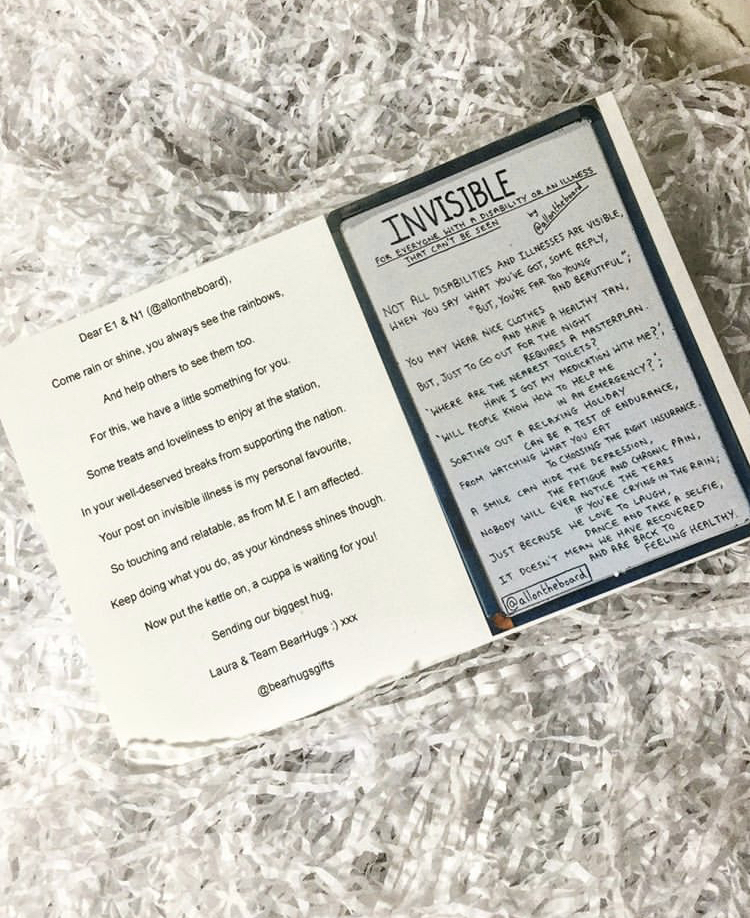 Dear E1 & N1 (@allontheboard),
Come rain or shine, you always see the rainbows,
And help others to see them too.
For this, we have a little something for you.
Some treats and loveliness to enjoy at the station,
In your well-deserved breaks from supporting the nation.
Your post on invisible illness is my personal favourite,
So touching and relatable, as from M.E I am affected.
Keep doing what you do, as your kindness shines though.
Now put the kettle on, a cuppa is waiting for you!
Sending our biggest hug,
Laura & Team BearHugs :) xxx
@bearhugsgifts
INVISIBLE
FOR EVERYONE WITH A DISABILITY OR AN ILLNESS
THAT CAN'T BE SEEN
by
@allontheboard
NOT ALL DISABILITIES AND ILLNESSES ARE VISIBLE,
WHEN YOU SAY WHAT YOU'VE GOT, SOME REPLY,
"BUT, YOU'RE FAR TOO YOUNG
AND BEAUTIFUL";
YOU MAY WEAR NICE CLOTHES
AND HAVE A HEALTHY TAN,
BUT, JUST TO GO OUT FOR THE NIGHT
REQUIRES A MASTERPLAN.
'WHERE ARE THE NEAREST TOILETS?
HAVE I GOT MY MEDICATION WITH ME?',
'WILL PEOPLE KNOW HOW TO HELP ME
IN AN EMERGENCY?';
SORTING OUT A RELAXING HOLIDAY
CAN BE A TEST OF ENDURANCE,
FROM WATCHING WHAT YOU EAT
TO CHOOSING THE RIGHT INSURANCE.
A SMILE CAN HIDE THE DEPRESSION,
THE FATIGUE AND CHRONIC PAIN,
NOBODY WILL EVER NOTICE THE TEARS
IF YOU'RE CRYING IN THE RAIN;
JUST BECAUSE WE LOVE TO LAUGH,
DANCE AND TAKE A SELFIE,
IT DOESN'T MEAN WE HAVE RECOVERED
AND ARE BACK TO
FEELING HEALTHY.
@allontheboard